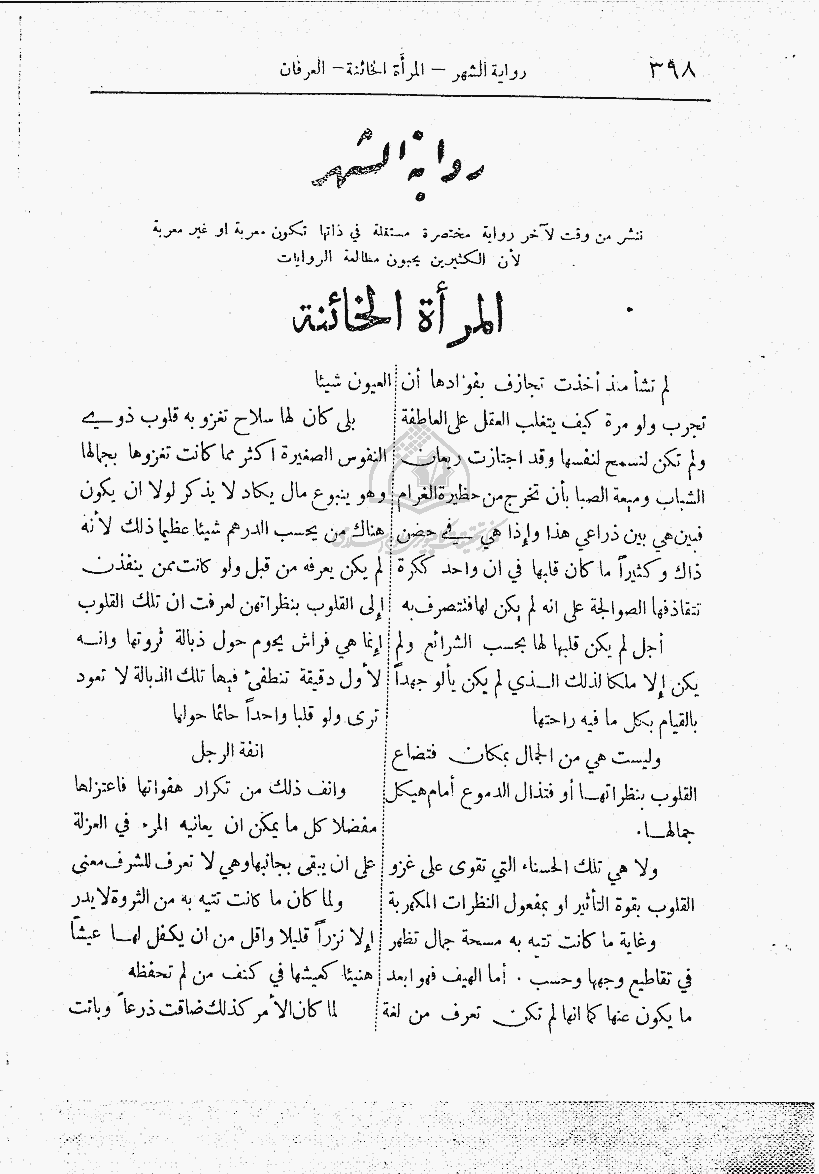 ٣٩٨
رواية الشهر – المرأة الخائنة – العرفان
رواية الشهر
ننشر من وقت لآخر رواية مختصرة مستقلة في ذاتها تكون معربة او غير معربة
لأن الكثيرين يحبون مطالعة الروايات
المرأة الخائنة
لم تشأ منذ أخذت تجازف بفؤادها أن
تجرب ولو مرة كيف يتغلب العقل على العاطفة
ولم تكن لتسمح لنفسها وقد اجتازت ريعان
الشباب وميعة الصبا بأن تخرج من حظيرة الغرام
فبين هي بين ذراعي هذا وإذا هي في حضن
ذاك وكثيراً ما كان قلبها في ان واحد ككرة
تتقاذفها الصوالجة على انه لم يكن لها فتتصرف به
أجل لم يكن قلبها لها بحسب الشرائع ولم
يكن إلا ملكا لذلك الذي لم يكن يألو جهداً
بالقيام بكل ما فيه راحتها
وليست هي من الجمال بمكان فتضاع
القلوب بنظراتها أو فتذال الدموع أمام هيكل
جمالها.
ولا هي تلك الحسناء التي تقوى على غزو
القلوب بقوة التأثير او بمفعول النظرات المكهربة
وغاية ما كانت تتيه به مسحة جمال تظهر
في تقاطيع وجهها وحسب . أما الهيف فهو ابعد
ما يكون عنها كما انها لم تكن تعرف من لغة
العيون شيئا
بلى كان لها سلاح تغزو به قلوب ذوي
النفوس الصغيرة اكثر مما كانت تغزوها بجمالها
وهو ينبوع مال يكاد لا يذكر لولا ان يكون
هناك من يحسب الدرهم شيئا عظيما ذلك لأنه
لم يكن يعرفه من قبل ولو كانت ممن ينفذن
إلى القلوب بنظراتهن لعرفت ان تلك القلوب
إنما هي فراش يحوم حول ذبالة ثروتها وانه
لأول دقيقة تنطفئ فيها تلك الذبالة لا تعود
ترى ولو قلبا واحداً حائما حولها
انفة الرجل
وانف ذلك من تكرار هفواتها فاعتزلها
مفضلا كل ما يمكن ان يعانيه المرء في العزلة
على ان يبقى بجانبها وهي لا تعرف للشرف معنى
ولما كان ما كانت تتيه به من الثروة لا يدر
إلا نزراً قليلا واقل من ان يكفل لها عيشاً
هنيئا كعيشها في كنف من لم تحفظه
لما كان الأمر كذلك ضاقت ذرعاً وباتت